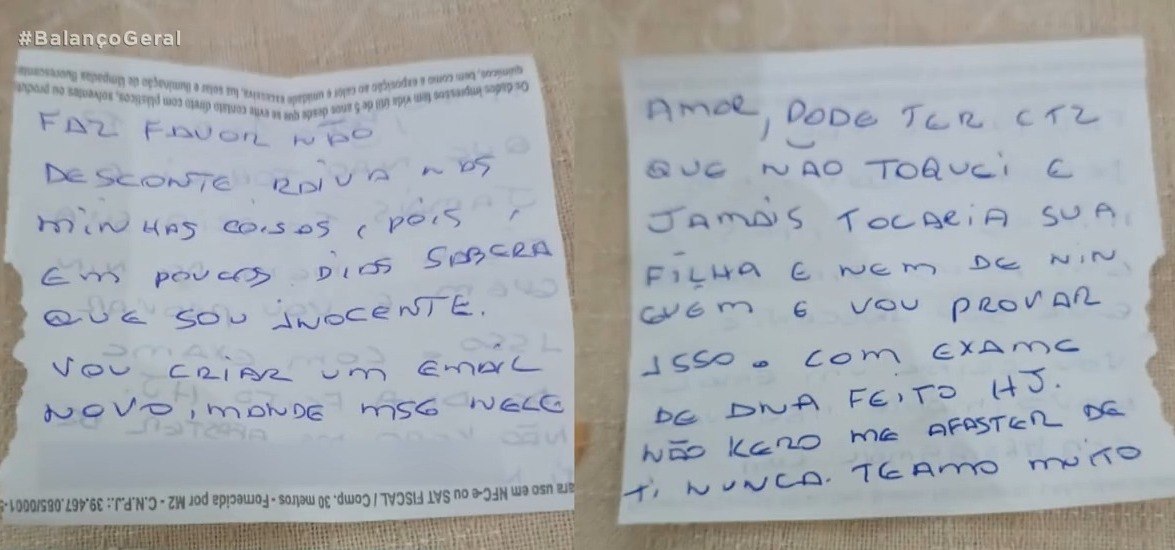 #BalançoGeral
químicos, bem como a exposição ao calor e umidade excessiva, luz solar e iluminação de lâmpadas fluorescentes
Os dados impressos têm vida útil de 5 anos desde que se evite contato direto com plásticos, solventes ou produtos
FAZ FAVOR NÃO
DESCONTE RAIVA NAS
MINHAS COISAS, POIS,
EM POUCOS DIAS SABERA
QUE SOU INOCENTE.
VOU CRIAR UM EMAIL
NOVO, MANDE MSG NELE
para uso em NFC-e ou SAT FISCAL / Comp. 30 metros - Fornecida por M2 - C.N.P.J.: 39.467.085/0001-
AMOR, PODE TER CTZ
QUE NÃO TOQUEI E
JAMAIS TOCARIA SUA
FILHA E NEM DE NIN
GUEM E VOU PROVAR
ISSO. COM EXAME
DE DNA FEITO HJ.
NÃO KERO ME AFASTER DE
TI NUNCA. TEAMO MUITO